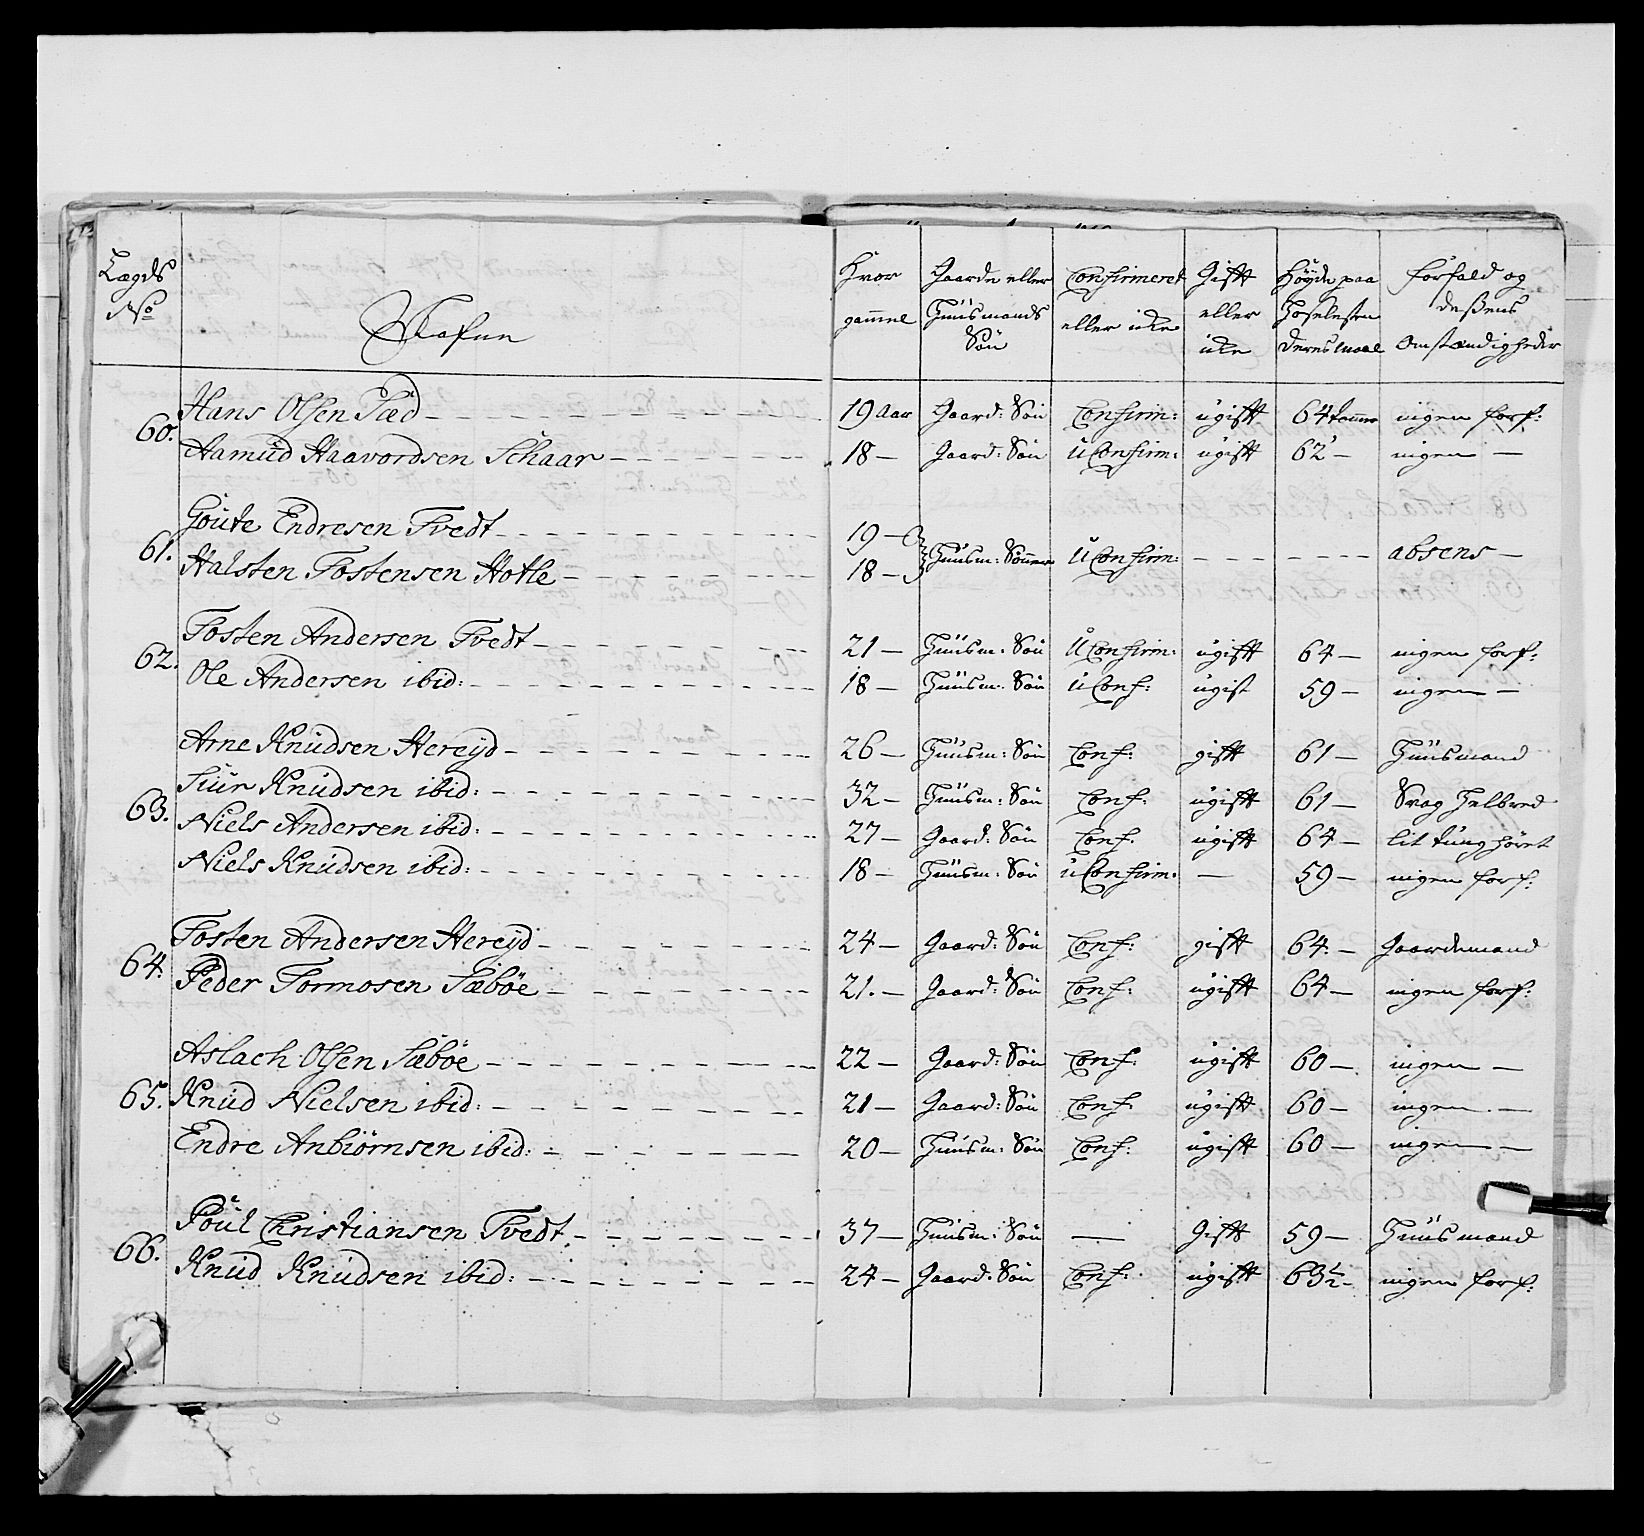 Lægds No | Nafne | Hvor gammel | Gaarde eller Huusmands Søn | Confirmeret eller icke | Gift eller icke | Høyde paa Hoselesten deres maal | Forfald og deßens Omstændigheder
60. Hans Olsen Sæd | 19 Aar | Gaard: Søn | Confirm: | ugift | 64 tomme | ingen forf:
Aamud Haavordsen Schaar | 18 | Gaard: Søn | uConfirm: | ugift | 62 | ingen
61. Goute Endresen Tvedt | 19 | Huusm: Sønner | uConfirm: | absens
Halsten Tostensen Hotle | 18
62. Tosten Andersen Tvedt | 21 | Huusm: Søn | uConfirm: | ugift | 64 | ingen forf:
Ole Andersen ibid: | 18 | Huusm: Søn | uConf: | ugift | 59 | ingen
63. Arne Knudsen Hereyd | 26 | Huusm: Søn | Conf: | gift | 61 | Huusmand
Siur Knudsen ibid: | 32 | Huusm: Søn | Conf: | ugift | 61 | Svag Helbred
Niels Andersen ibid: | 27 | Gaard: Søn | Conf: | ugift | 64 | lit tunghøret
Niels Knudsen ibid: | 18 | Huusm: Søn | uConfirm: | — | 59 | ingen forf:
64. Tosten Andersen Hereyd | 24 | Gaard: Søn | Conf: | gift | 64 | Gaardemand
Peder Tormosen Sæbøe | 21 | Gaard: Søn | Conf: | ugift | 64 | ingen forf:
65. Aslach Olsen Sæbøe | 22 | Gaard: Søn | Conf: | ugift | 60 | ingen
Knud Nielsen ibid: | 21 | Gaard: Søn | Conf: | ugift | 60 | ingen
Endre Anbiørnsen ibid: | 20 | Huusm: Søn | Conf: | ugift | 60 | ingen
66. Poul Christiansen Tvedt | 37 | Huusm: Søn | — | Gift | 59 | Huusmand
Knud Knudsen ibid: | 24 | Gaard: Søn | Conf: | ugift | 63½ | ingen forf: